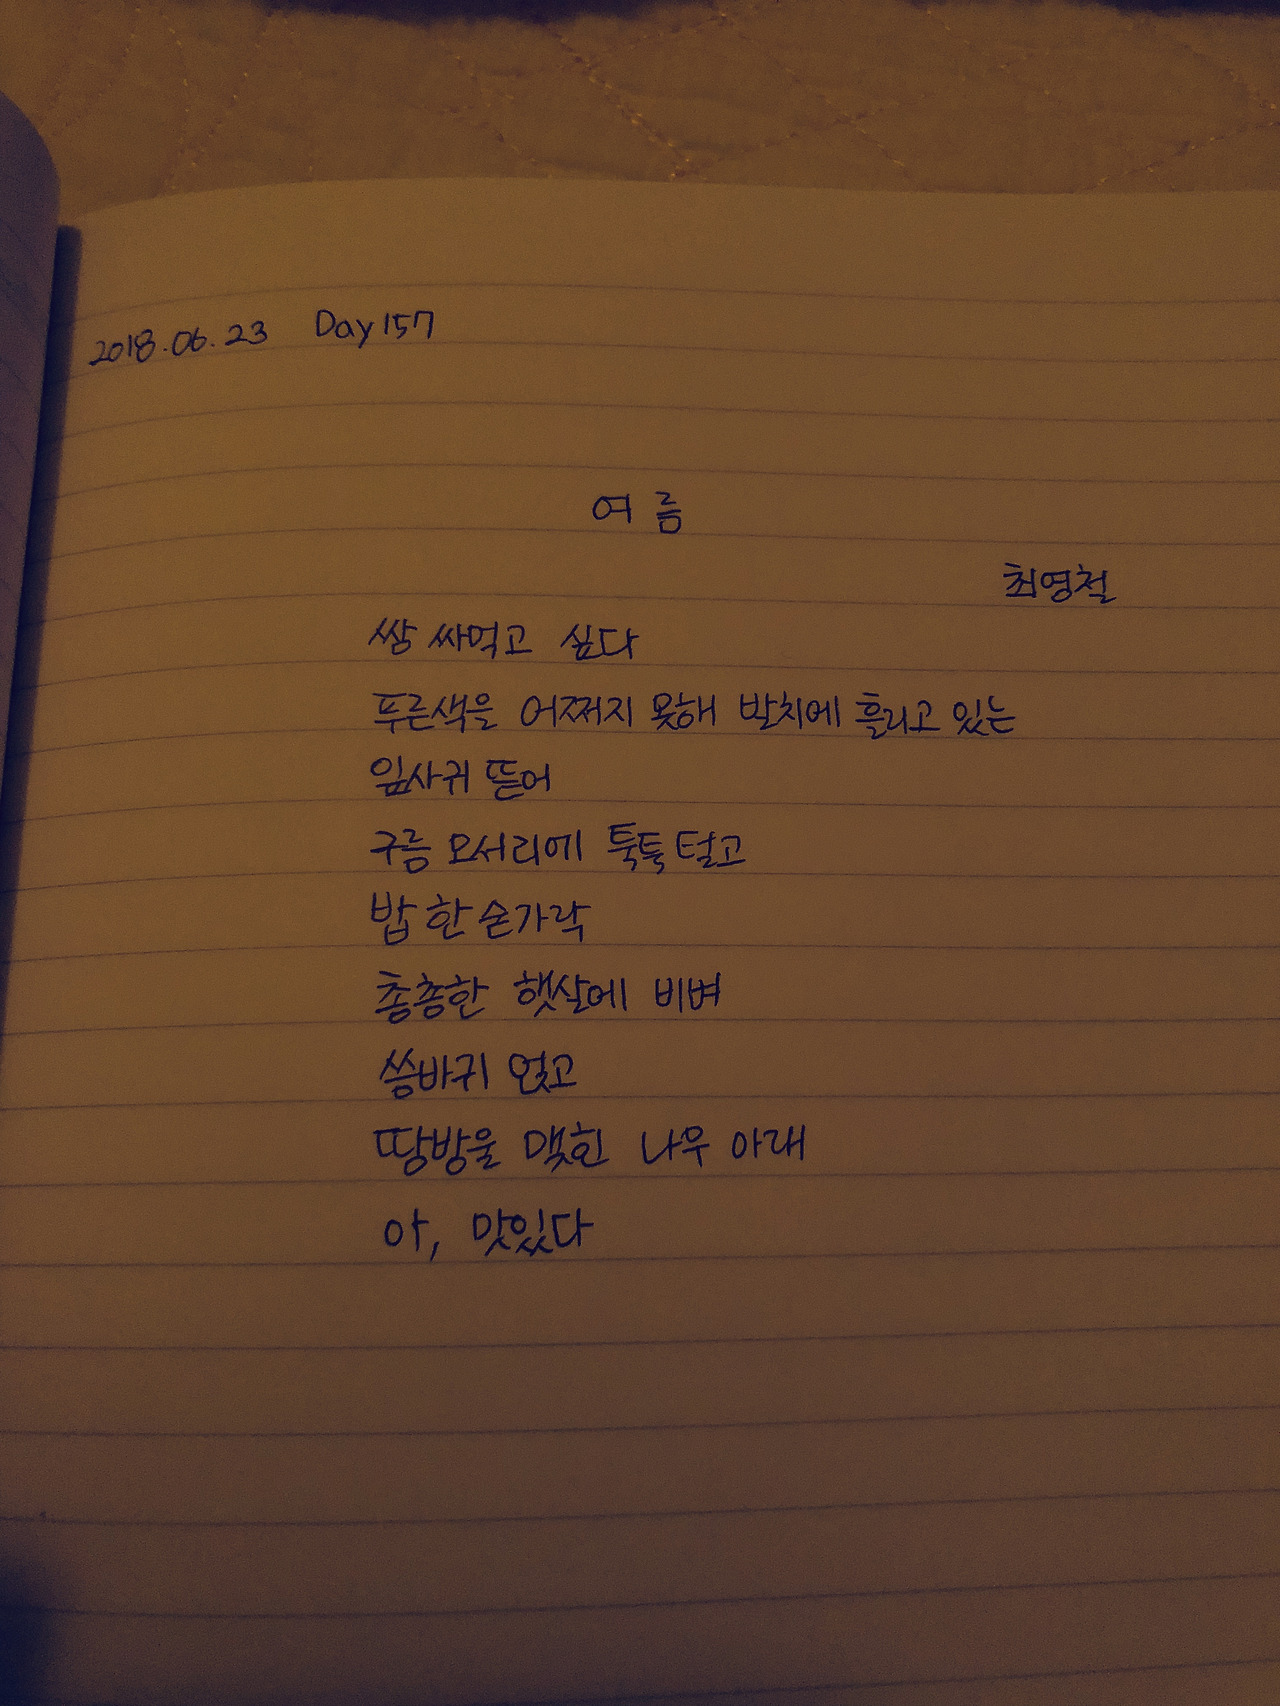 2018.06.23 Day 157
여 름
최영철
쌈 싸먹고 싶다
푸른색을 어쩌지 못해 발치에 흘리고 있는
잎사귀 뜯어
구름 모서리에 툭툭 털고
밥 한 숟가락
촘촘한 햇살에 비벼
씀바귀 얹고
땅방울 맺힌 나무 아래
아, 맛있다